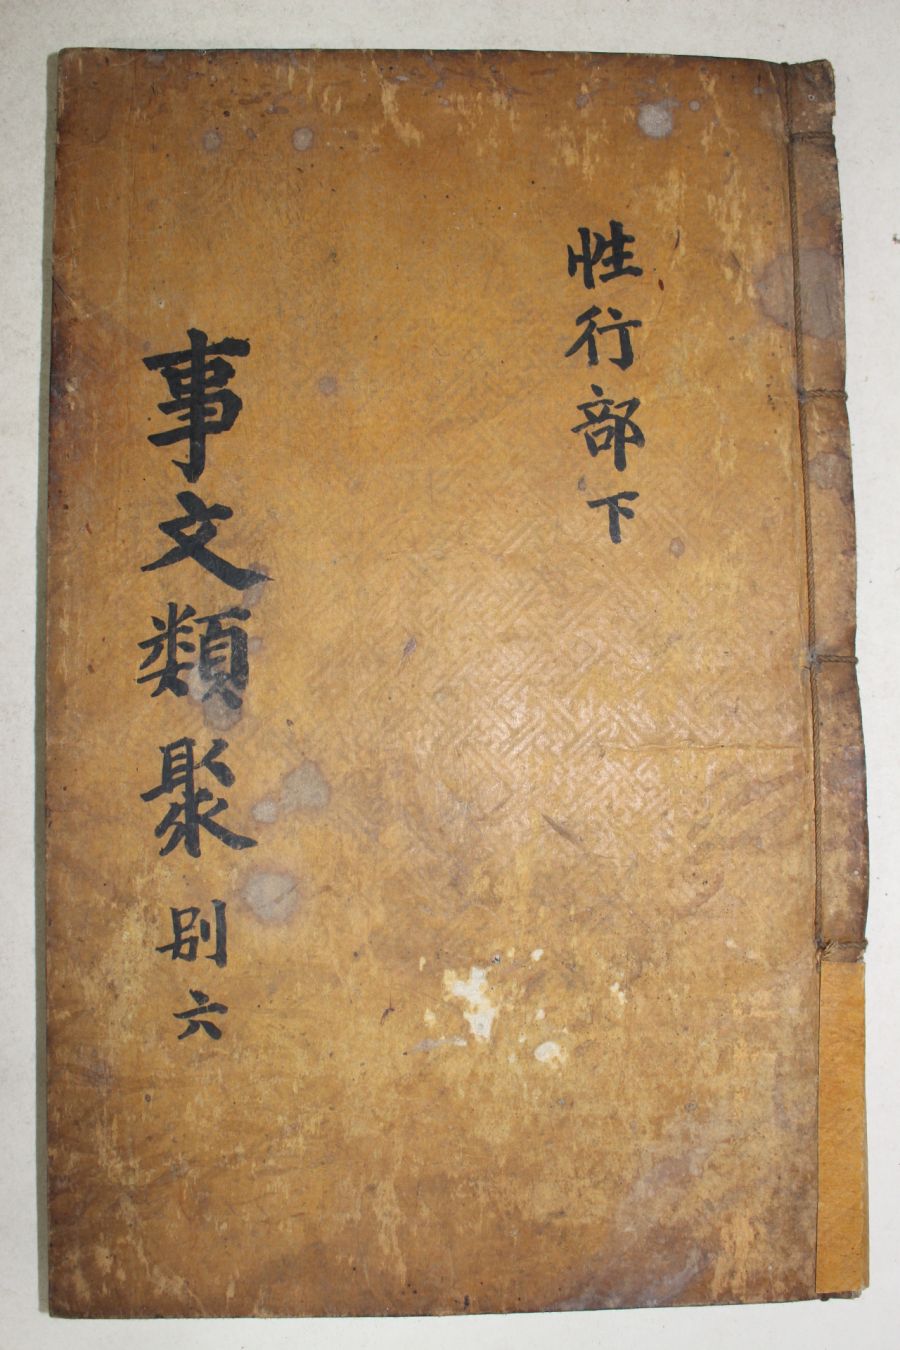 性行部下
事文類聚 別六